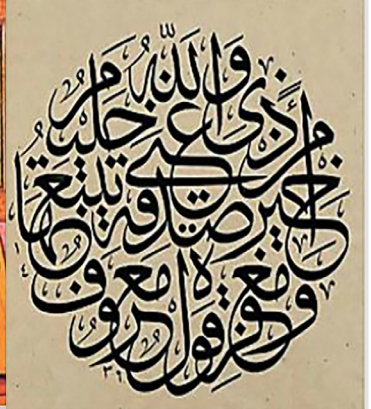 قول معروف ومغفرة
خير من صدقة يتبعها
أذى والله غني حليم